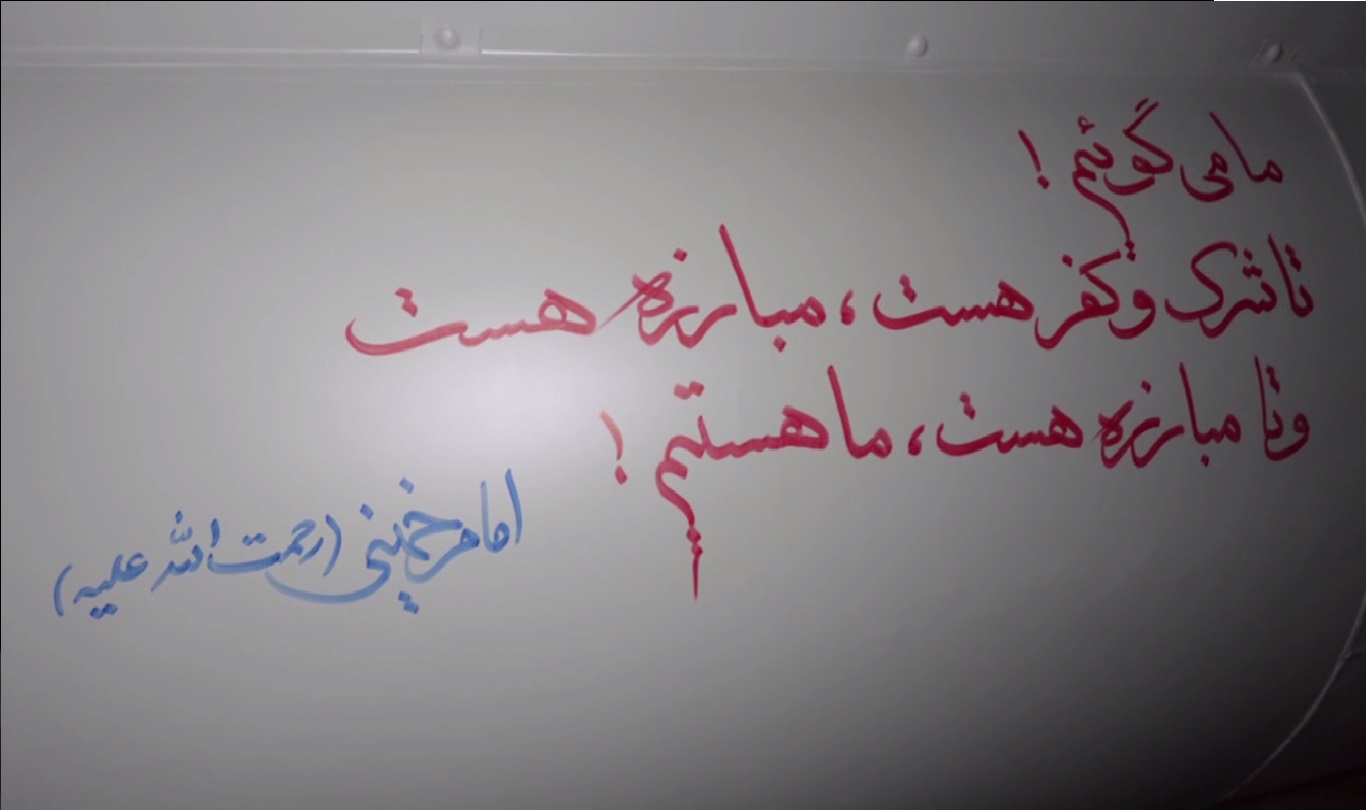 ما می گوئیم !
تا شرک و کفر هست ، مبارزه هست
و تا مبارزه هست ، ما هستیم !
امام خمینی (رحمت الله علیه)